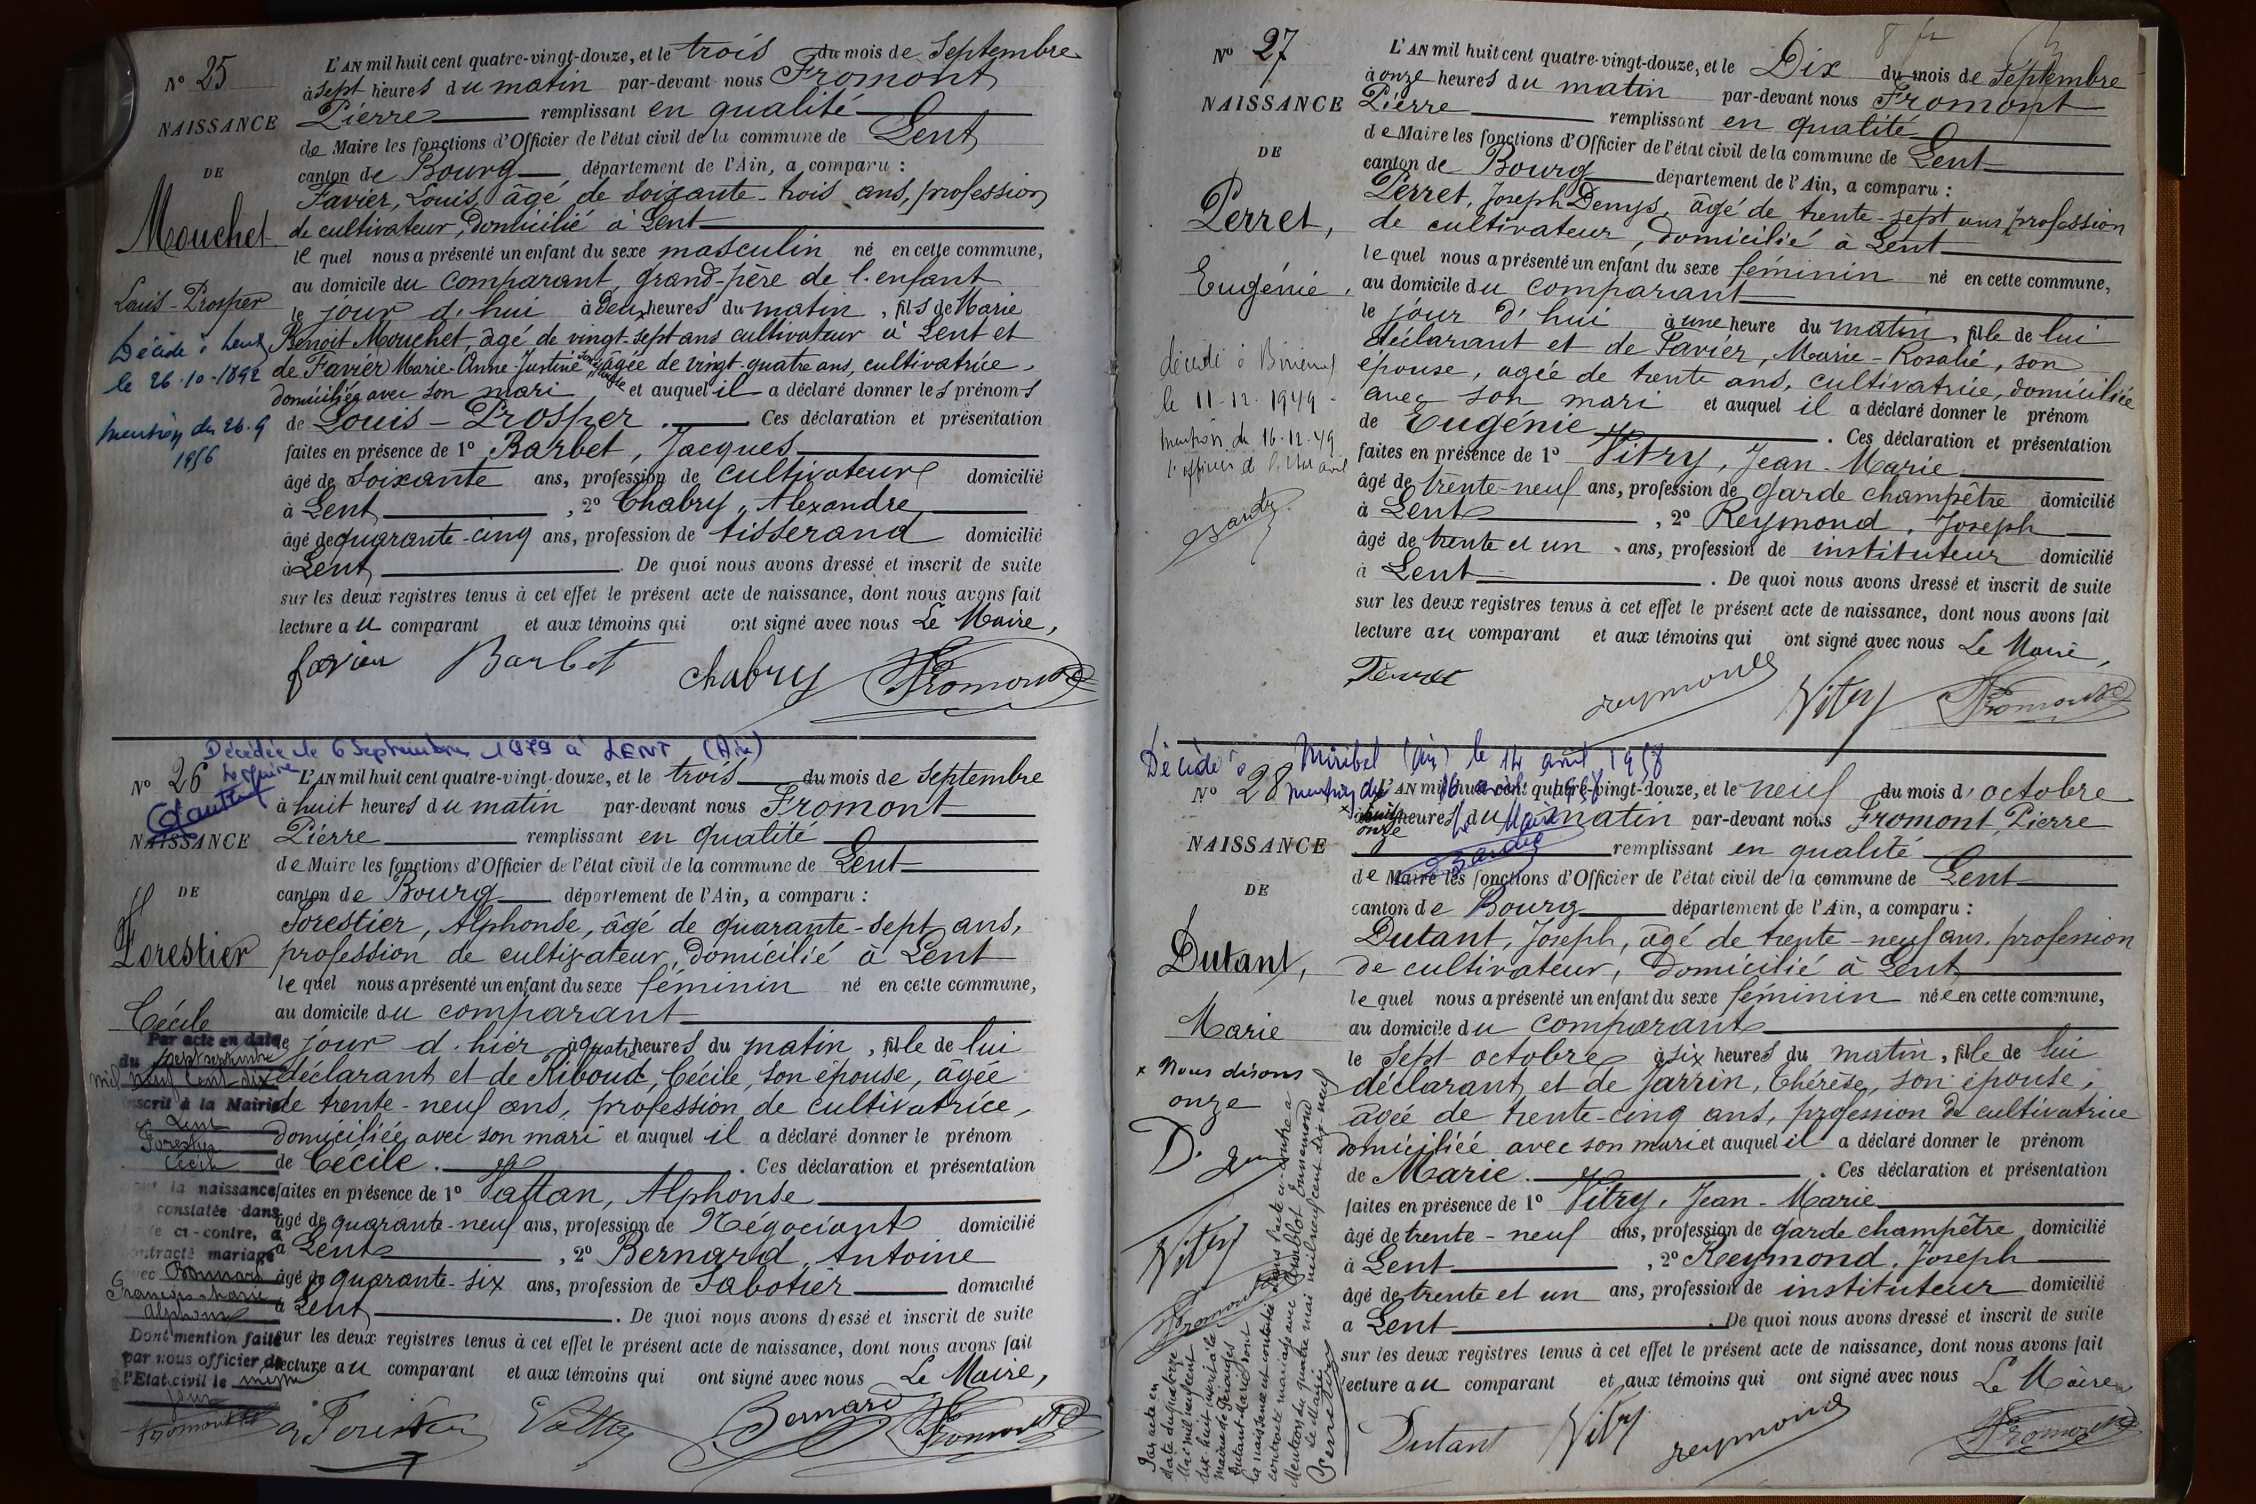 N° 25
NAISSANCE
DE
Mouchet
Louis-Prosper
Décédé à Lent
le 26-10-1892
mention du 26.9
1956
L'AN mil huit cent quatre-vingt-douze, et le trois du mois de Septembre
à sept heures du matin par-devant nous Fromont
Pierre remplissant en qualité
de Maire les fonctions d'Officier de l'état civil de la commune de Lent
canton de Bourg département de l'Ain, a comparu :
Favier, Louis, âgé de soixante-trois ans, profession
de cultivateur, domicilié à Lent
le quel nous a présenté un enfant du sexe masculin né en cette commune,
au domicile du comparant, grand-père de l'enfant
le jour d'hui à deux heures du matin, fils de Marie
Benoit Mouchet, âgé de vingt-sept ans cultivateur à Lent et
de Favier Marie-Anne-Justine âgée de vingt-quatre ans, cultivatrice,
domiciliée avec son mari et auquel il a déclaré donner les prénoms
de Louis-Prosper. Ces déclaration et présentation
faites en présence de 1° Barbet, Jacques
âgé de soixante ans, profession de cultivateur domicilié
à Lent, 2° Chabry, Alexandre
âgé de quarante-cinq ans, profession de tisserand domicilié
à Lent. De quoi nous avons dressé et inscrit de suite
sur les deux registres tenus à cet effet le présent acte de naissance, dont nous avons fait
lecture au comparant et aux témoins qui ont signé avec nous Le Maire,
favier Barbet Chabry Fromont
Décédée le 6 Septembre 1979 à LENT (Ain)
Le Maire
N° 26
NAISSANCE
DE
Forestier
Cécile
Par acte en date
du sept septembre
mil neuf cent dix
inscrit à la Mairie
Lent
Forestier
Cécile
dont la naissance
constatée dans
l'acte ci-contre, a
contracté mariage
avec
François Marie
Alphonse
Dont mention faite
par nous officier de
l'Etat civil le même
jour
Fromont
L'AN mil huit cent quatre-vingt-douze, et le trois du mois de Septembre
à huit heures du matin par-devant nous Fromont
Pierre remplissant en qualité
de Maire les fonctions d'Officier de l'état civil de la commune de Lent
canton de Bourg département de l'Ain, a comparu :
Forestier, Alphonse, âgé de quarante-sept ans,
profession de cultivateur, domicilié à Lent
le quel nous a présenté un enfant du sexe féminin né en cette commune,
au domicile du comparant
le jour d'hier à quatre heures du matin, fille de lui
déclarant et de Riboud, Cécile, son épouse, âgée
de trente-neuf ans, profession de cultivatrice,
domiciliée avec son mari et auquel il a déclaré donner le prénom
de Cécile. Ces déclaration et présentation
faites en présence de 1° Vattan, Alphonse
âgé de quarante-neuf ans, profession de Négociant domicilié
à Lent, 2° Bernard, Antoine
âgé de quarante-six ans, profession de Sabotier domicilié
à Lent. De quoi nous avons dressé et inscrit de suite
sur les deux registres tenus à cet effet le présent acte de naissance, dont nous avons fait
lecture au comparant et aux témoins qui ont signé avec nous Le Maire,
Bernard Fromont
N° 27
NAISSANCE
DE
Perret,
Eugénie,
décédée à
le 11-12-1949-
mention du 16-12-49
l'officier de l'état civil
L'AN mil huit cent quatre-vingt-douze, et le Dix du mois de Septembre
à onze heures du matin par-devant nous Fromont
Pierre remplissant en qualité
de Maire les fonctions d'Officier de l'état civil de la commune de Lent
canton de Bourg département de l'Ain, a comparu :
Perret, Joseph Denys, âgé de trente-sept ans, profession
de cultivateur, domicilié à Lent
le quel nous a présenté un enfant du sexe féminin né en cette commune,
au domicile du comparant
le jour d'hui à une heure du matin, fille de lui
déclarant et de Favier, Marie-Rosalie, son
épouse, agée de trente ans, cultivatrice, domiciliée
avec son mari et auquel il a déclaré donner le prénom
de Eugénie. Ces déclaration et présentation
faites en présence de 1° Vitry, Jean-Marie
âgé de trente-neuf ans, profession de garde champêtre domicilié
à Lent, 2° Reymond, Joseph
âgé de trente et un ans, profession de instituteur domicilié
à Lent. De quoi nous avons dressé et inscrit de suite
sur les deux registres tenus à cet effet le présent acte de naissance, dont nous avons fait
lecture au comparant et aux témoins qui ont signé avec nous Le Maire,
Perret reymond Vitry Fromont
Décédée à Miribel (Ain) le 14 août 1958
mention du 16 août 1958
Le Maire
N° 28
NAISSANCE
DE
Dutant,
Marie
x Nous disons
onze
D.
Vitry
Fromont
Par acte en
date du quatorze
Mai mil neuf cent
dix-huit inscrit à la
mairie de Pérouges
Dutant Marie dont
la naissance est constatée dans l'acte ci-contre a
contracté mariage avec Jonnemond
Mention du quatre mai mil neuf cent dix-neuf
Le Maire
L'AN mil huit cent quatre-vingt-douze, et le neuf du mois d'octobre
onze heures du matin par-devant nous Fromont, Pierre
remplissant en qualité
de Maire les fonctions d'Officier de l'état civil de la commune de Lent
canton de Bourg département de l'Ain, a comparu :
Dutant, Joseph, âgé de trente-neuf ans, profession
de cultivateur, domicilié à Lent
le quel nous a présenté un enfant du sexe féminin née en cette commune,
au domicile du comparant
le sept octobre à six heures du matin, fille de lui
déclarant et de Jarrin, Thérèse, son épouse,
âgée de trente-cinq ans, profession de cultivatrice
domiciliée avec son mari et auquel il a déclaré donner le prénom
de Marie. Ces déclaration et présentation
faites en présence de 1° Vitry, Jean-Marie
âgé de trente-neuf ans, profession de garde champêtre domicilié
à Lent, 2° Reymond, Joseph
âgé de trente et un ans, profession de instituteur domicilié
à Lent. De quoi nous avons dressé et inscrit de suite
sur les deux registres tenus à cet effet le présent acte de naissance, dont nous avons fait
lecture au comparant et aux témoins qui ont signé avec nous Le Maire
Dutant Vitry reymond Fromont